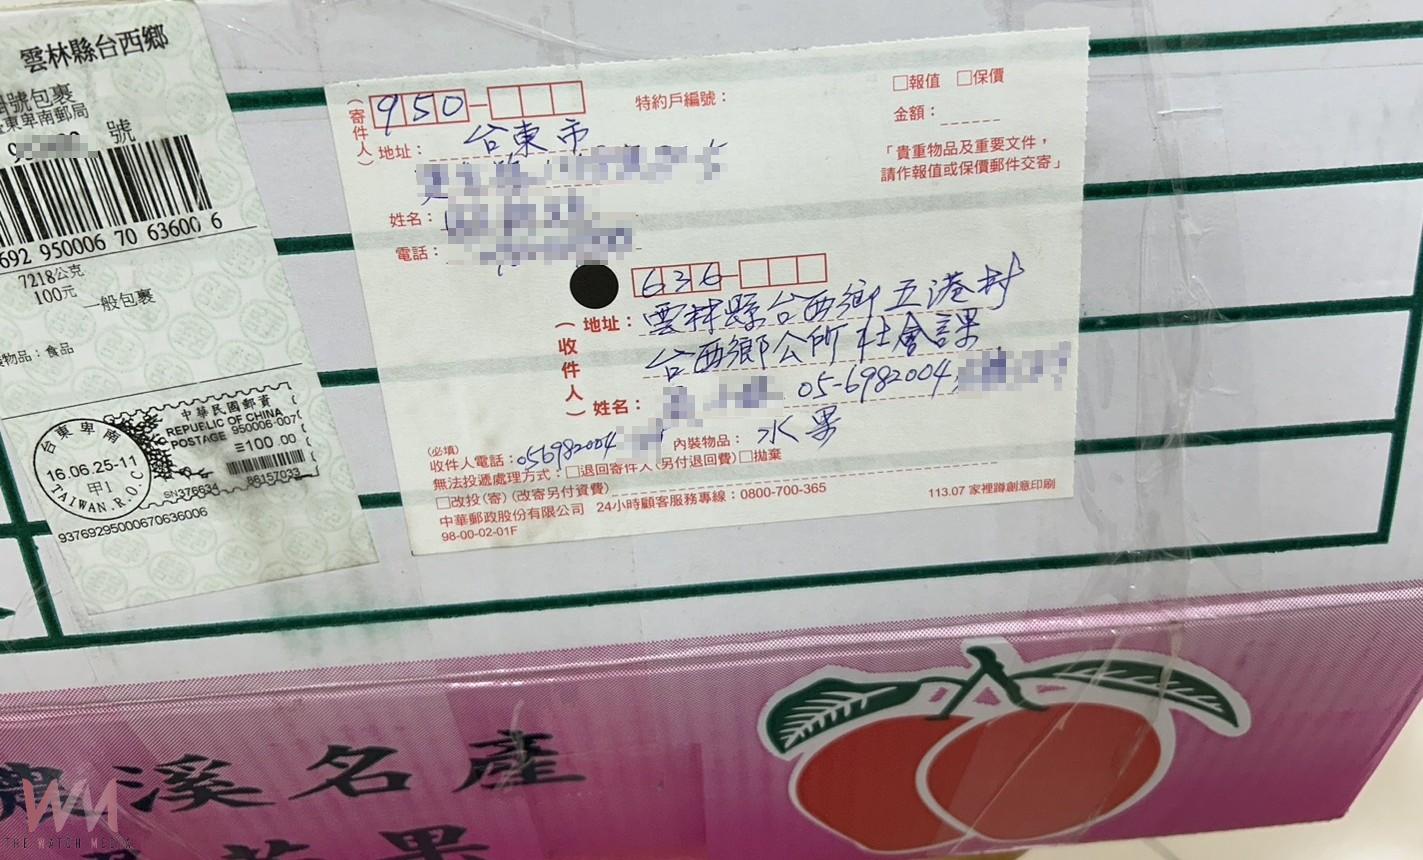 雲林縣台西鄉
號包裹
東卑南郵局
號
692 950006 70 63600 6
7218公克
100元
一般包裹
物品：食品
台東卑南
16.06.25-11
甲1
TAIWAN.R.O.C
中華民國郵資
REPUBLIC OF CHINA
POSTAGE 950006-007
100.00
SN376634 86157033
93769295000670636006
(寄件人)
950
特約戶編號：
□報值 □保價
金額：
「貴重物品及重要文件，
請作報值或保價郵件交寄」
地址：台東市
姓名：
電話：
636
(收件人)
地址：雲林縣台西鄉五港村
台西鄉公所社會課
姓名： 05-6982004
(必填)
收件人電話：056982004 內裝物品：水果
無法投遞處理方式：□退回寄件人(另付退回費)□拋棄
□改投(寄)(改寄另付資費)
中華郵政股份有限公司 24小時顧客服務專線：0800-700-365
98-00-02-01F
113.07 家裡蹲創意印刷
溪名產
果
WM
THE WATCH MEDIA